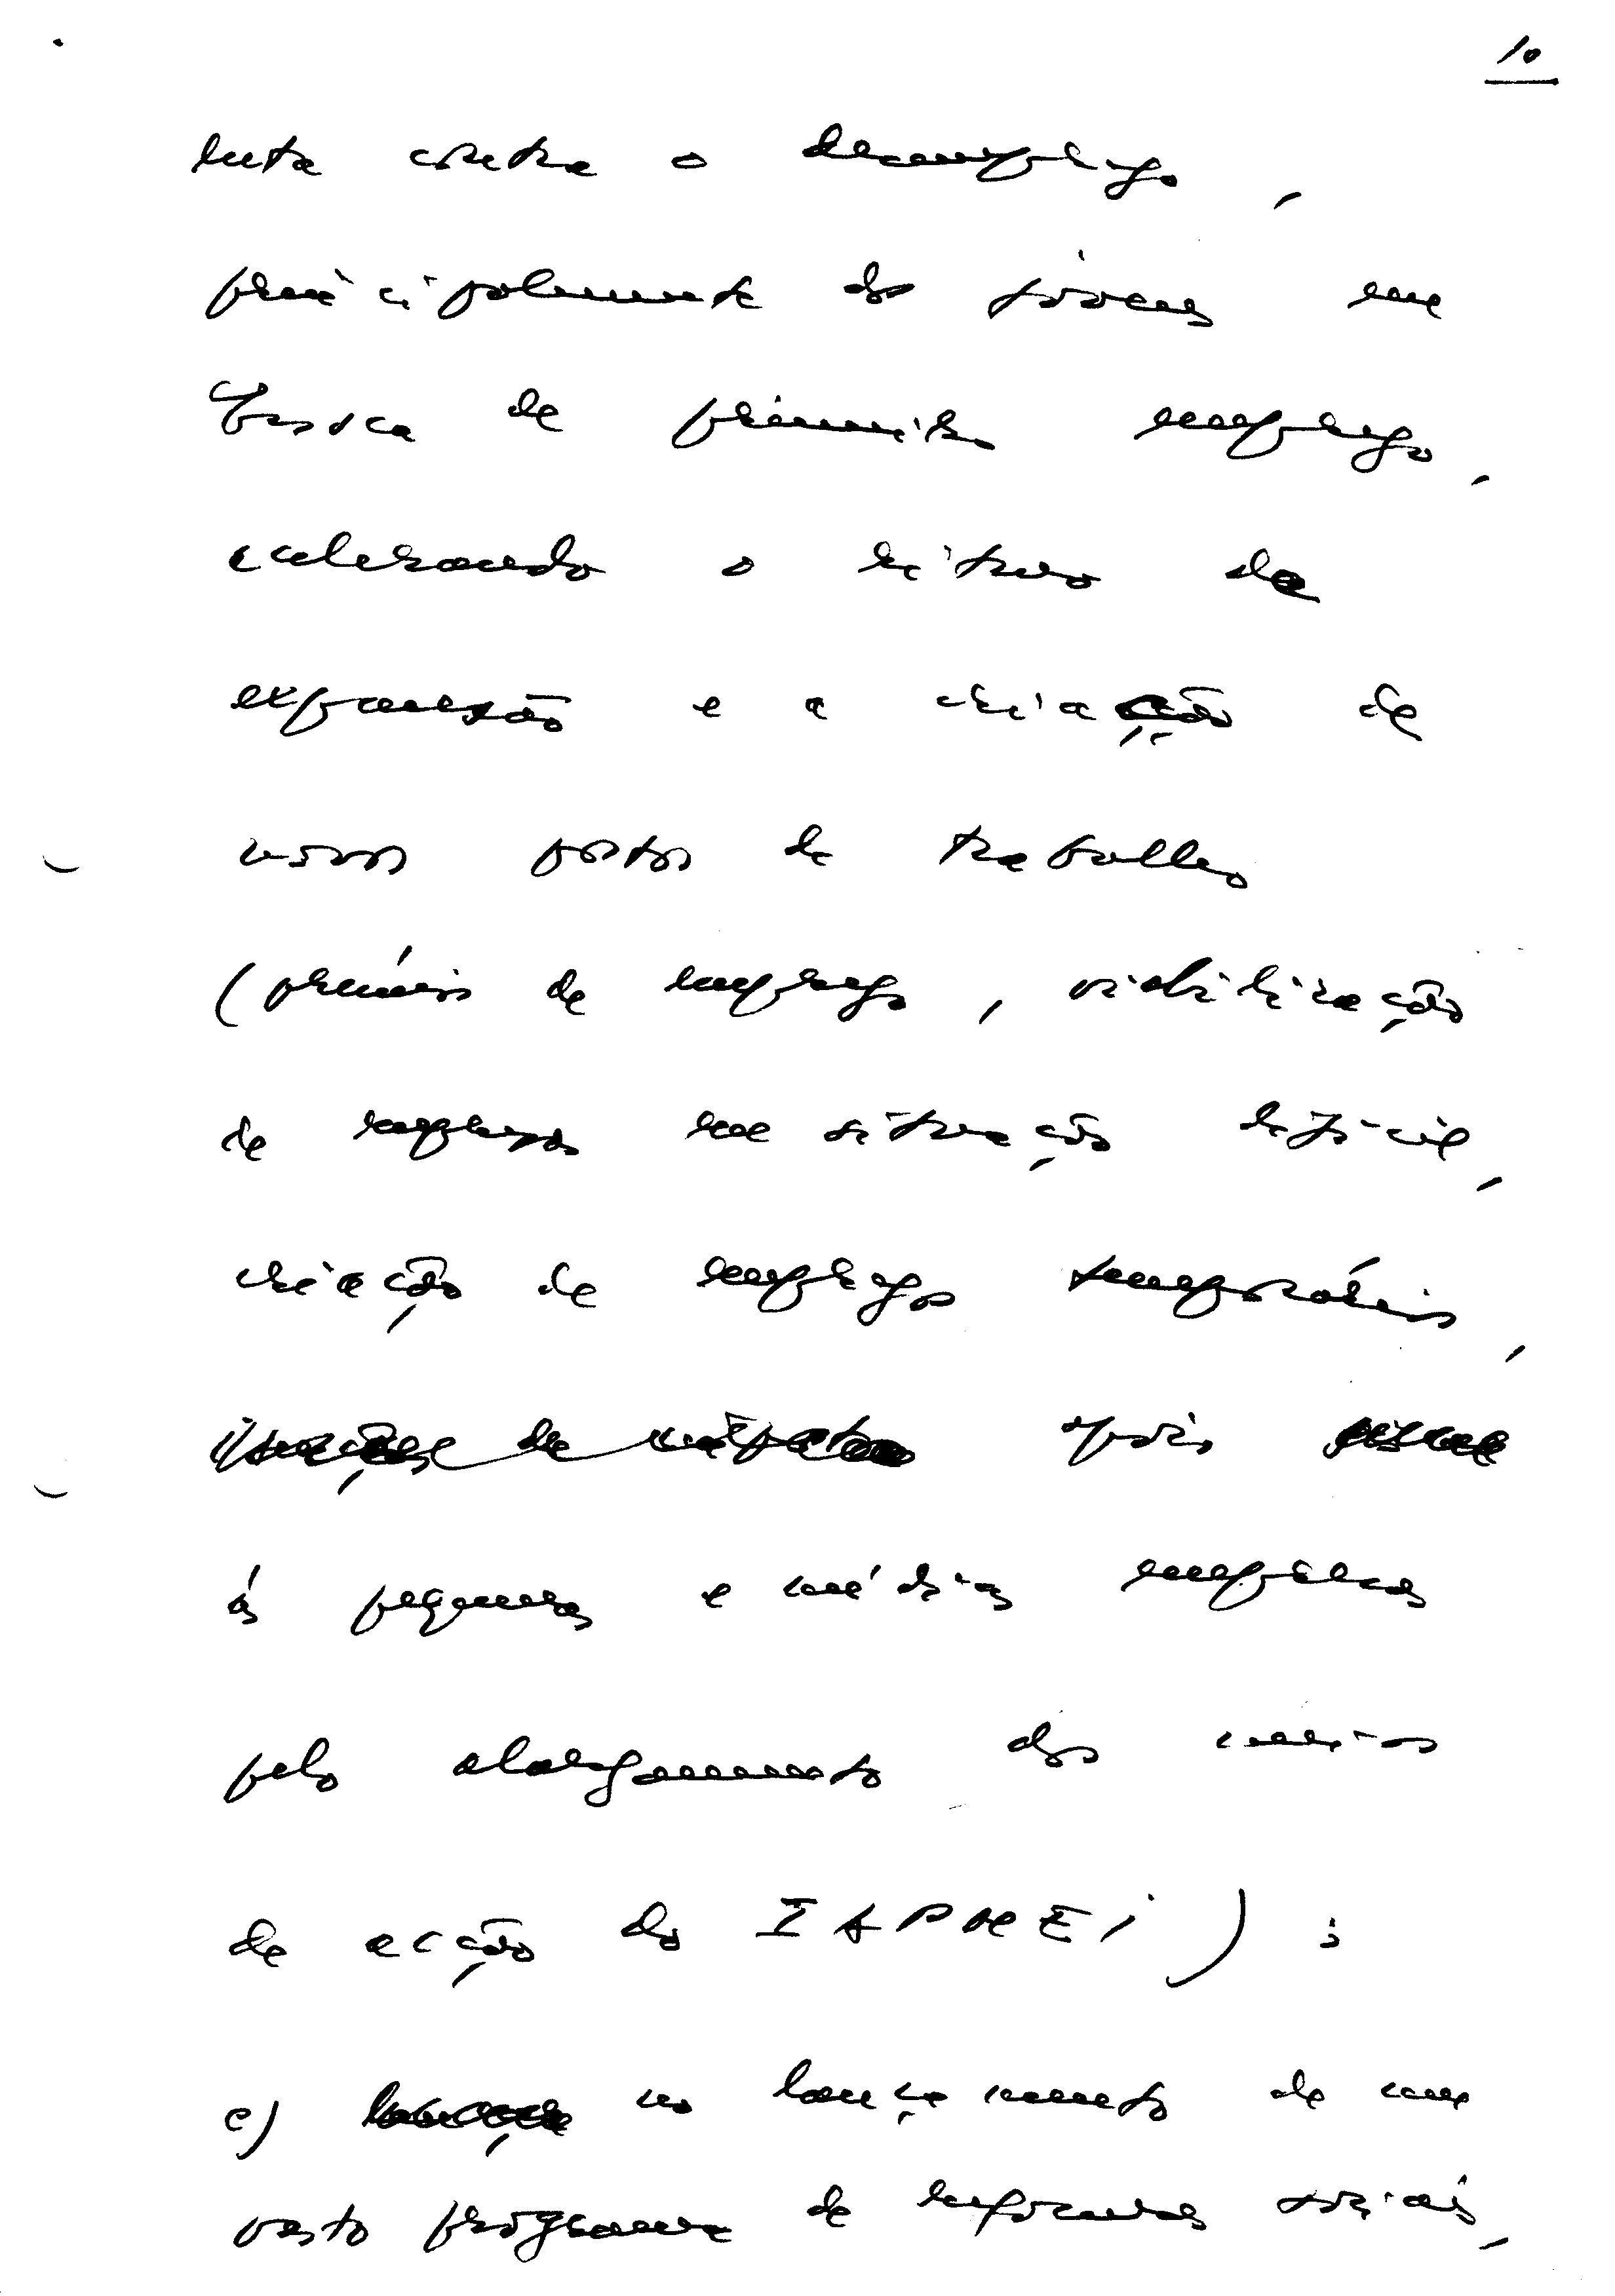 10
luta contra o desemprego,
principalmente dos jovens em
busca de primeiro emprego,
acelerando o ritmo da
expansão e a criação de
novos postos de trabalho
(prémios de emprego, viabilização
de empresas em situação difícil,
criação de empregos temporários,
apoio
às pequenas e médias empresas
pelo alargamento dos meios
de acção do IAPMEI);
c) no lançamento de um
vasto programa de reformas sociais,